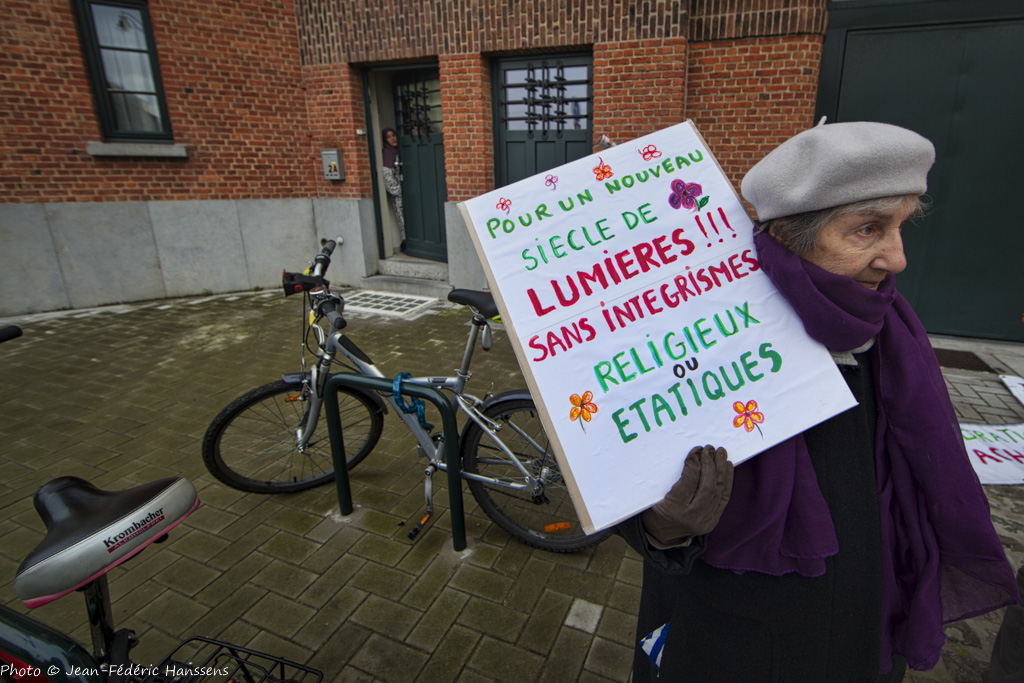 2A
POUR UN NOUVEAU
SIECLE DE
LUMIERES !!!
SANS INTEGRISMES
RELIGIEUX
OU
ETATIQUES
Krombacher
ACH
Photo © Jean-Fédéric Hanssens